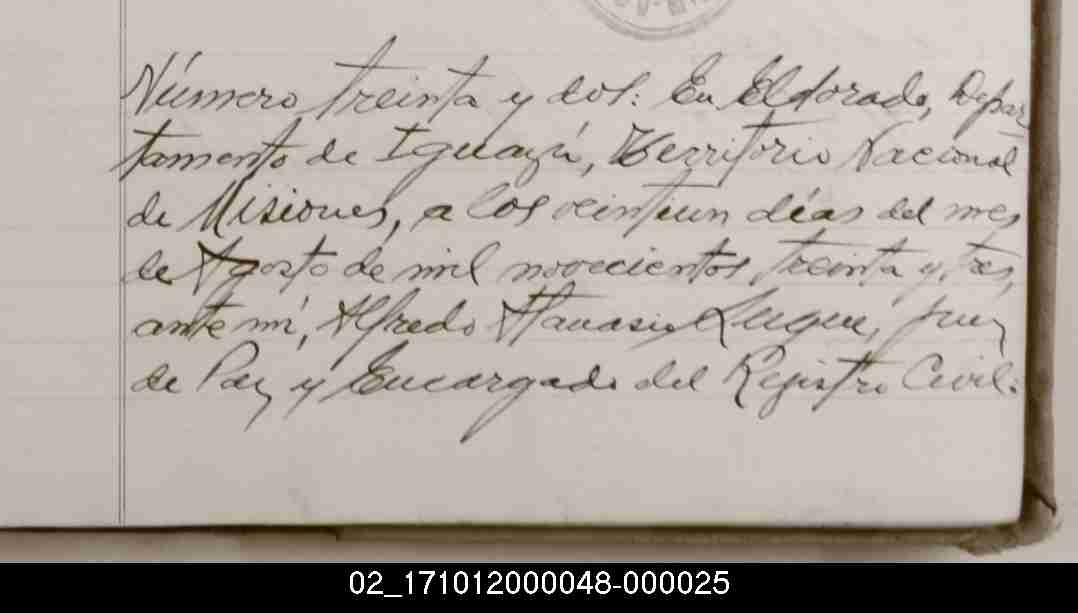 Número treinta y dos: En Eldorado, Depar
tamento de Iguazú, Territorio Nacional
de Misiones, a los veintiun días del mes
de Agosto de mil novecientos treinta y tres,
ante mí, Alfredo Atanasio Luque, Juez
de Paz y Encargado del Registro Civil:
02_171012000048-000025